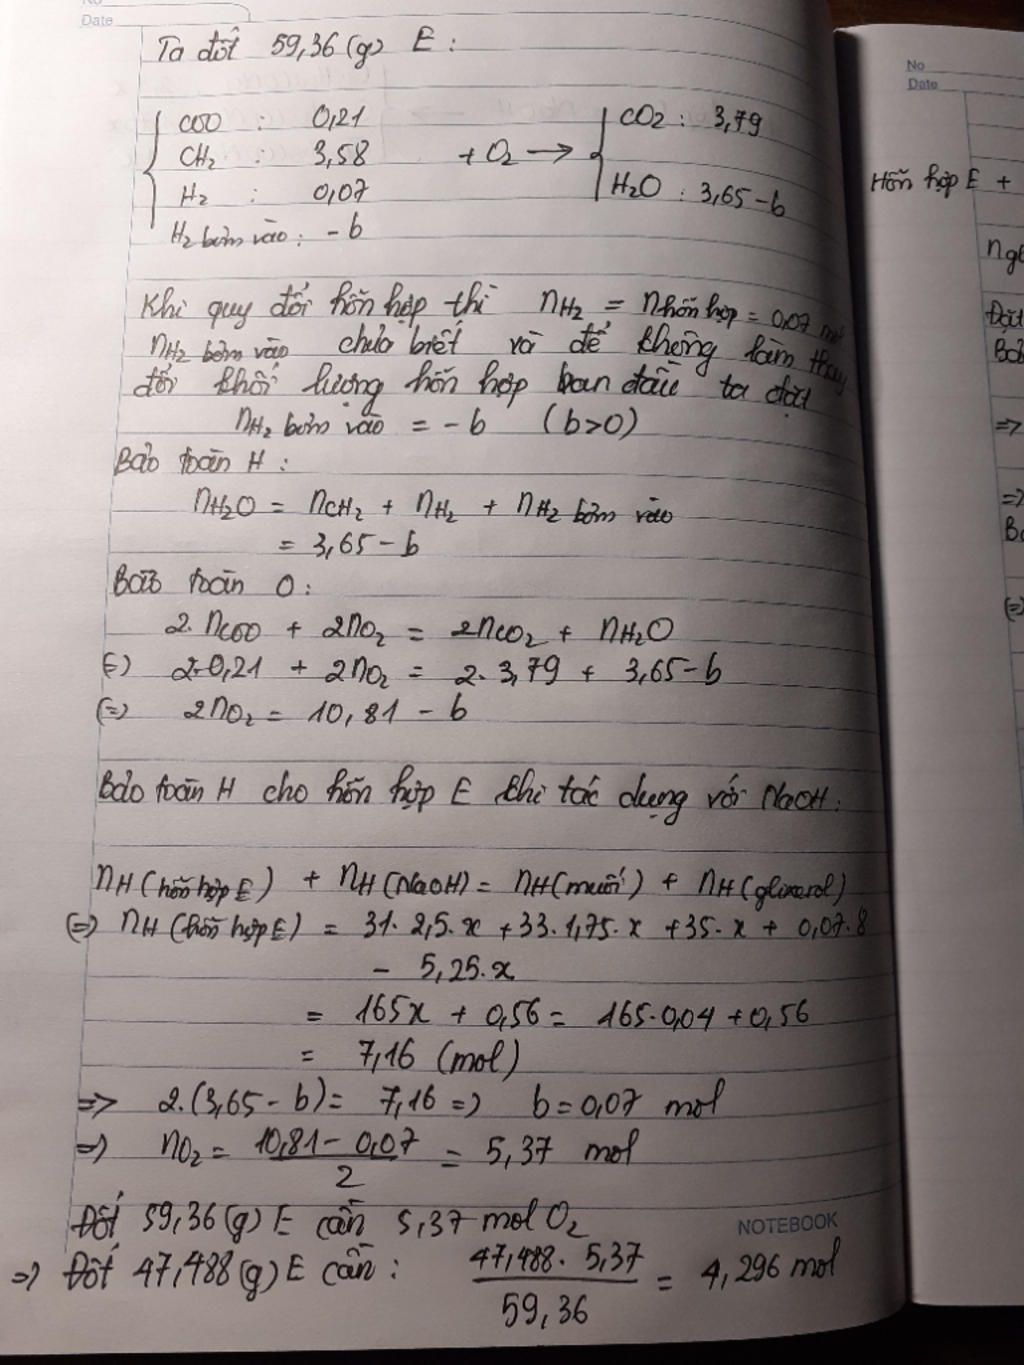 No
Date
Ta đốt 59,36 (g) E :
COO : 0,21
CH2 : 3,58
H2 : 0,07
H2 bơm vào : -b
+ O2 →
CO2 : 3,79
H2O : 3,65-b
Khi quy đổi hỗn hợp thì nH2 = nhỗn hợp = 0,07 mol
nH2 bơm vào chưa biết và để không làm thay
đổi khối lượng hỗn hợp ban đầu ta đặt
nH2 bơm vào = -b (b>0)
Bảo toàn H :
nH2O = nCH2 + nH2 + nH2 bơm vào
= 3,65 - b
Bảo toàn O :
2.nCOO + 2nO2 = 2nCO2 + nH2O
(=) 2.0,21 + 2nO2 = 2.3,79 + 3,65-b
(=) 2nO2 = 10,81 - b
Bảo toàn H cho hỗn hợp E khi tác dụng với NaOH :
nH (hỗn hợp E) + nH (NaOH) = nH (muối) + nH (glixerol)
(=) nH (hỗn hợp E) = 31.2,5.x + 33.1,75.x + 35.x + 0,07.8
- 5,25.x
= 165x + 0,56 = 165.0,04 + 0,56
= 7,16 (mol)
=> 2.(3,65-b) = 7,16 => b = 0,07 mol
=> nO2 = 10,81 - 0,07 / 2 = 5,37 mol
Đốt 59,36 (g) E cần 5,37 mol O2
=> Đốt 47,488 (g) E cần : 47,488 . 5,37 / 59,36 = 4,296 mol
NOTEBOOK
No
Date
Hỗn hợp E +
Đặt
=>
=>
(=)